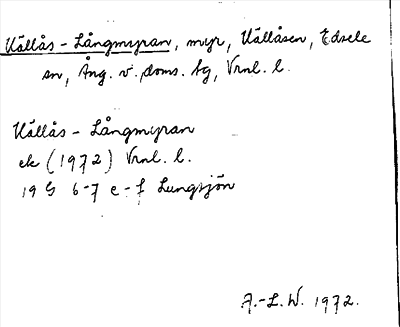 Källås-Långmyran, myr, Källåsen, Edsele
sn, Ång. v. doms. bg, Vrnl. l.
Källås-Långmyran
ek (1972) Vrnl. l.
19 G 6-7 e-f Lungsjön
A.-L.W. 1972.